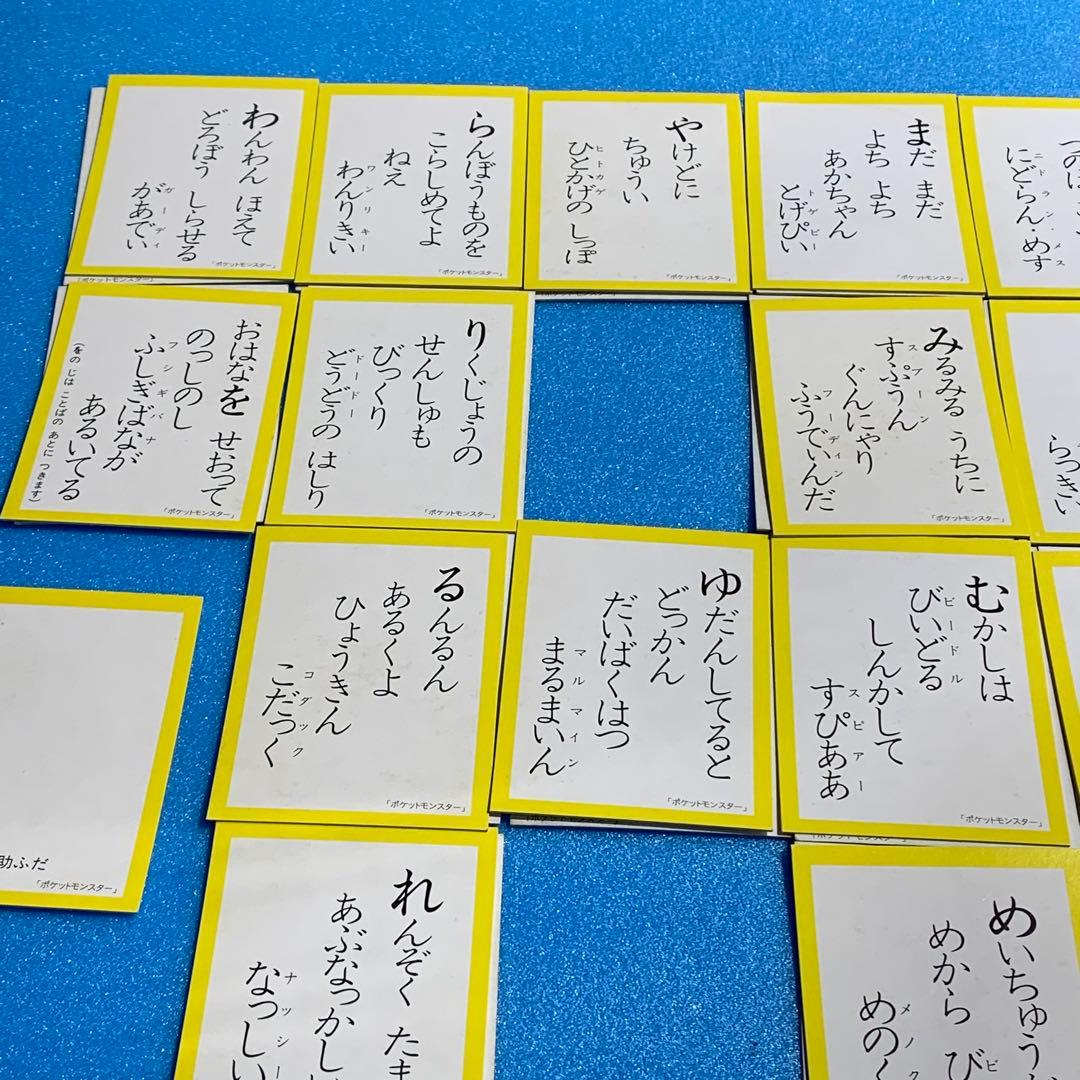 わんわん ほえて
どろぼう しらせる
があでい
ガーディ
「ポケットモンスター」
らんぼうものを
こらしめてよ
ねえ
わんりきい
ワンリキー
「ポケットモンスター」
やけどに
ちゅうい
ひとかげの しっぽ
ヒトカゲ
「ポケットモンスター」
まだ まだ
よち よち
あかちゃん
とげぴい
トゲピー
「ポケットモンスター」
にどらん・めす
ニドラン・メス
おはなを せおって
のっしのし
ふしぎばなが
フシギバナ
あるいてる
(をの じは ことばの あとに つきます)
「ポケットモンスター」
りくじょうの
せんしゅも
びっくり
どうどうの はしり
ドードー
「ポケットモンスター」
みるみる うちに
すぷうん
スプーン
ぐんにゃり
ふうでいんだ
フーディン
「ポケットモンスター」
らっきい
るんるん
あるくよ
ひょうきん
こだっく
コダック
「ポケットモンスター」
ゆだんしてると
どっかん
だいばくはつ
まるまいん
マルマイン
「ポケットモンスター」
むかしは
びいどる
ビードル
しんかして
すぴああ
スピアー
「ポケットモンスター」
助ふだ
「ポケットモンスター」
れんぞく たま
あぶなっかし
なっしい
ナッシー
めいちゅう
めから び
ビ
めのく
メノク